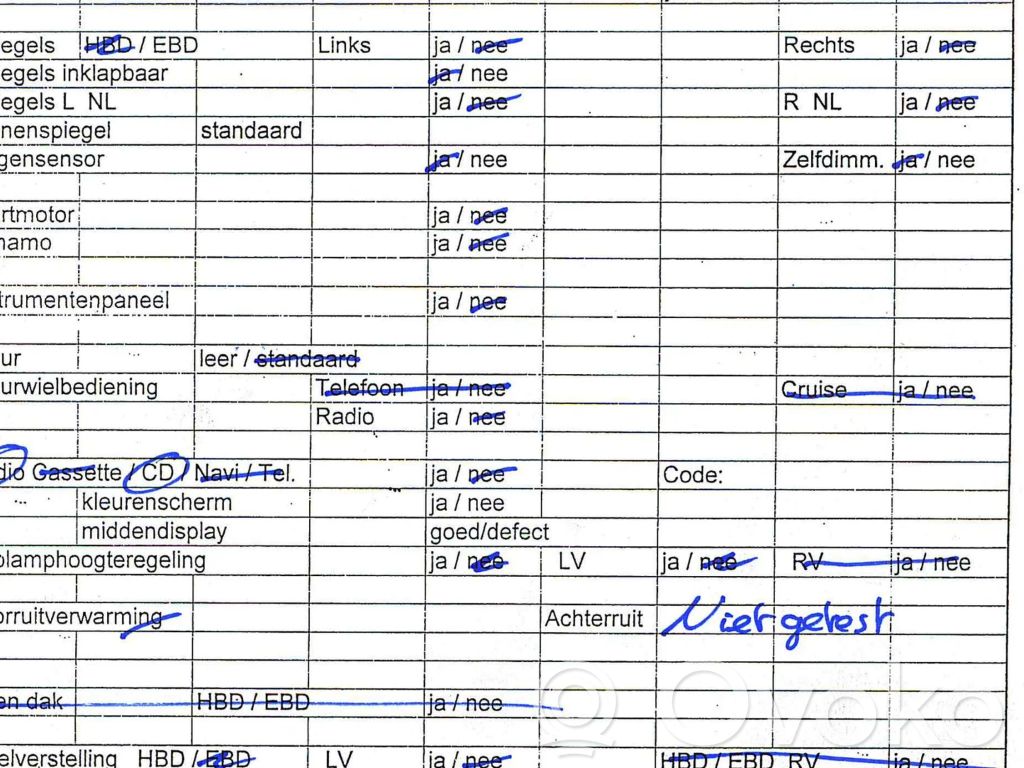 egels HBD / EBD Links ja / nee Rechts ja / nee
egels inklapbaar ja / nee
egels L NL ja / nee R NL ja / nee
nenspiegel standaard
gensensor ja / nee Zelfdimm. ja / nee
rtmotor ja / nee
namo ja / nee
trumentenpaneel ja / nee
ur leer / standaard
urwielbediening Telefoon ja / nee Cruise ja / nee
Radio ja / nee
dio Cassette / CD / Navi / Tel. ja / nee Code:
kleurenscherm ja / nee
middendisplay goed/defect
plamphoogteregeling ja / nee LV ja / nee RV ja / nee
orruitverwarming Achterruit Niet getest
en dak HBD / EBD ja / nee
elverstelling HBD / EBD LV ja / nee HBD / EBD RV ja / nee
Ovoko